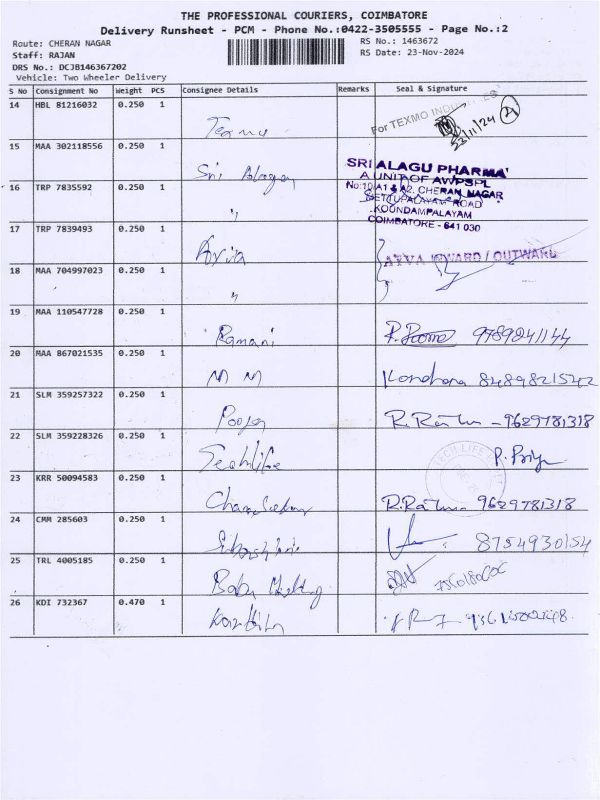 THE PROFESSIONAL COURIERS, COIMBATORE
Delivery Runsheet - PCM - Phone No.:0422-3505555 - Page No.:2
Route: CHERAN NAGAR RS No.: 1463672
Staff: RAJAN RS Date: 23-Nov-2024
DRS No.: DCJB146367202
Vehicle: Two Wheeler Delivery
S No Consignment No Weight PCS Consignee Details Remarks Seal & Signature
14 HBL 81216032 0.250 1
For TEXMO INDUSTRIES
23/11/24 2
15 MAA 302118556 0.250 1 Sri Alagu
SRI ALAGU PHARMA
A UNIT OF AWPSPL
No:10/A1 & A2, CHERAN NAGAR
SETTUPALAYAM ROAD
KOUNDAMPALAYAM
COIMBATORE - 641 030
16 TRP 7835592 0.250 1 "
17 TRP 7839493 0.250 1
INWARD / OUTWARD
18 MAA 704997023 0.250 1 "
19 MAA 110547728 0.250 1 Ramani 9789841144
20 MAA 867021535 0.250 1 M M 8489821542
21 SLM 359257322 0.250 1 Pooja R.Rathna - 9629781318
22 SLM 359228326 0.250 1 Techlife P. Priya
TECH LIFE
23 KRR 50094583 0.250 1 R.Rathna 9629781318
24 CMM 285603 0.250 1 8754930154
25 TRL 4005185 0.250 1 Babu
26 KDI 732367 0.470 1